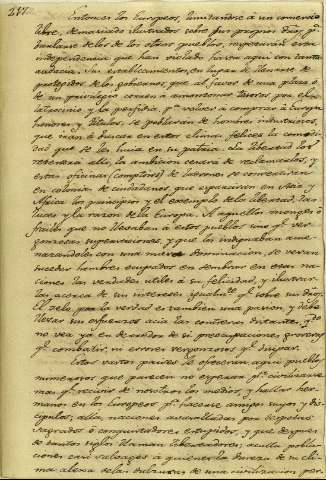 217.
Entonces los Europeos, limitandose a un comercio
libre, demasiado ilustrados sobre sus propios dros, p.a
burlarse de los de los otros pueblos, respetarán esta
independencia que han violado hasta aqui con tanta
audacia. Sus establecimientos, en lugar de llenarse de
protegidos de los gobiernos, que al favor de una plaza ó
de un privilegio corren a amontonar tesoros por el
latrocinio y la perfidia, p.a volver a comprar a Europa
honores y titulos, se poblarán de hombres industriosos,
que irán á buscar en estos climas felices la comodi-
dad que les huia en su patria. La libertad los
retendrá alli, la ambicion cesará de reclamarlos, y
estas oficinas (comptoirs) de ladrones se convertirán
en colonias de ciudadanos que esparcirán en Asia y
Africa los principios y el exemplo de la libertad, las
luces y la razon de la Europa. A aquellos monges ó
frailes que no llevaban á estos pueblos sino
vergonzosas supersticiones y que los indignaban ame-
nazandoles con una nueva dominacion, se verán
suceder hombres ocupados en sembrar en esas na-
ciones las verdades utiles á su felicidad, y ilustrar-
las acerca de sus intereses
El zelo por la verdad es tambien una pasion, y debe
llevar sus esfuerzos acia las comarcas distantes,
no vea ya en derredor de si preocupaciones groseras
q.e combatir, ni errores vergonzosos q.e disipar.
Estos vastos paises le ofrecerán aqui pueblos
numerosos que parecen no esperar p.a civilizarse
mas q.e recibir de nosotros los medios, y hallar her-
manos en los Europeos p.a hacerse amigos suyos y dis-
cipulos; alla, naciones
sagrados ó conquistadores estupidos, y que despues
de tantos siglos llaman libertadores; acullá pobla-
ciones casi salvages á quienes la dureza de su cli-
ma alexa de las dulzuras de una civilizacion per-